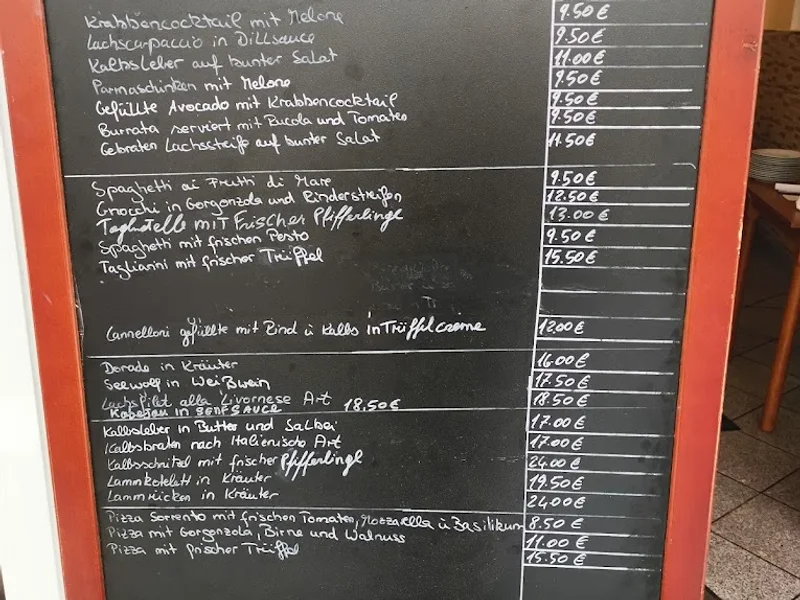 Krabbencocktail mit Melone 9.50 €
Lachscarpaccio in Dillsauce 9.50 €
Kalbsleber auf bunter Salat 11.00 €
Parmaschinken mit Melone 9.50 €
Gefüllte Avocado mit Krabbencocktail 9.50 €
Burrata serviert mit Rucola und Tomaten 9.50 €
Gebraten Lachssteife auf bunter Salat 11.50 €
Spaghetti ai Frutti di Mare 9.50 €
Gnocchi in Gorgonzola und Rinderstreifen 12.50 €
Tagliatelle mit Frischer Pfifferlinge 13.00 €
Spaghetti mit frischen Pesto 9.50 €
Taglianini mit frischer Trüffel 15.50 €
Cannelloni gefüllte mit Rind u Kalbs in Trüffelcreme 12.00 €
Dorade in Kräuter 16.00 €
Seewolf in Weißwein 17.50 €
Lachsfilet alla Livornese Art 18.50 €
Kabeljau in SENFSAUCE 18.50 €
Kalbsleber in Butter und Salbei 17.00 €
Kalbsbraten nach Italienisch Art 17.00 €
Kalbsschnitzel mit frischer Pfifferlinge 24.00 €
Lammkotelett in Kräuter 19.50 €
Lammrücken in Kräuter 24.00 €
Pizza Sorrento mit frischen Tomaten, Mozzarella u Basilikum 8.50 €
Pizza mit Gorgonzola, Birne und Walnuss 11.00 €
Pizza mit frischer Trüffel 15.50 €